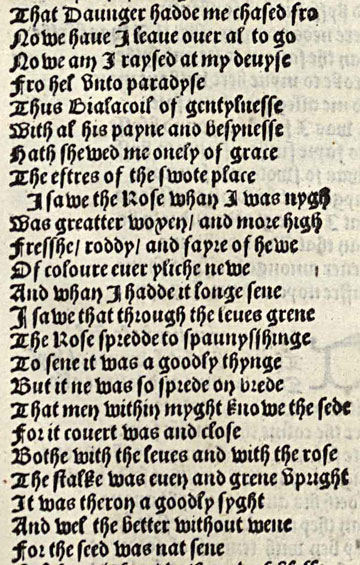 That Daunger hadde me chased fro
Nowe haue I leaue ouer al to go
Nowe am I raysed at my deuyse
Fro hel vnto paradyse
Thus Bialacoil of gentylnesse
With al his payne and besynesse
Hath shewed me onely of grace
The estres of the swote place
I sawe the Rose whan I was nygh
Was greatter woxen/ and more high
Fresshe/ roddy/ and fayre of hewe
Of coloure euer yliche newe
And whan I hadde it longe sene
I sawe that through the leues grene
The Rose spredde to spaunysshinge
To sene it was a goodly thynge
But it ne was so sprede on brede
That men within myght knowe the sede
For it couert was and close
Bothe with the leues and with the rose
The stalke was euen and grene vpright
It was theron a goodly syght
And wel the better without wene
For the seed was nat sene